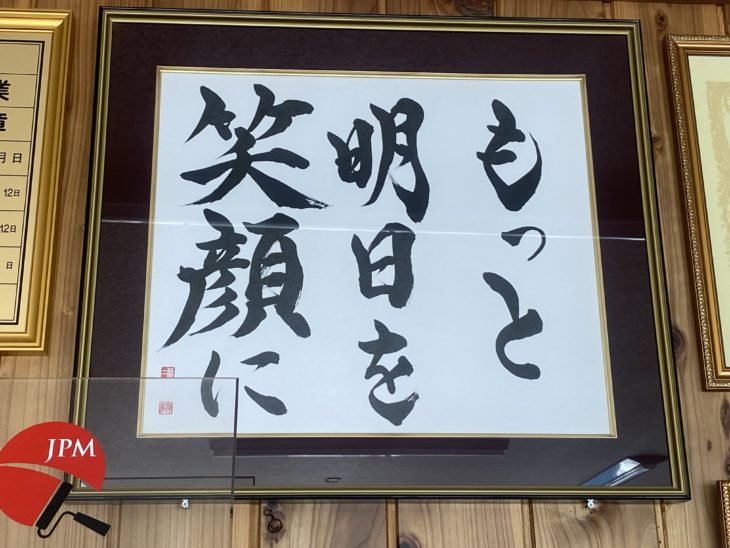 もっと
明日を
笑顔に
業
月日
12日
12日
日
JPM